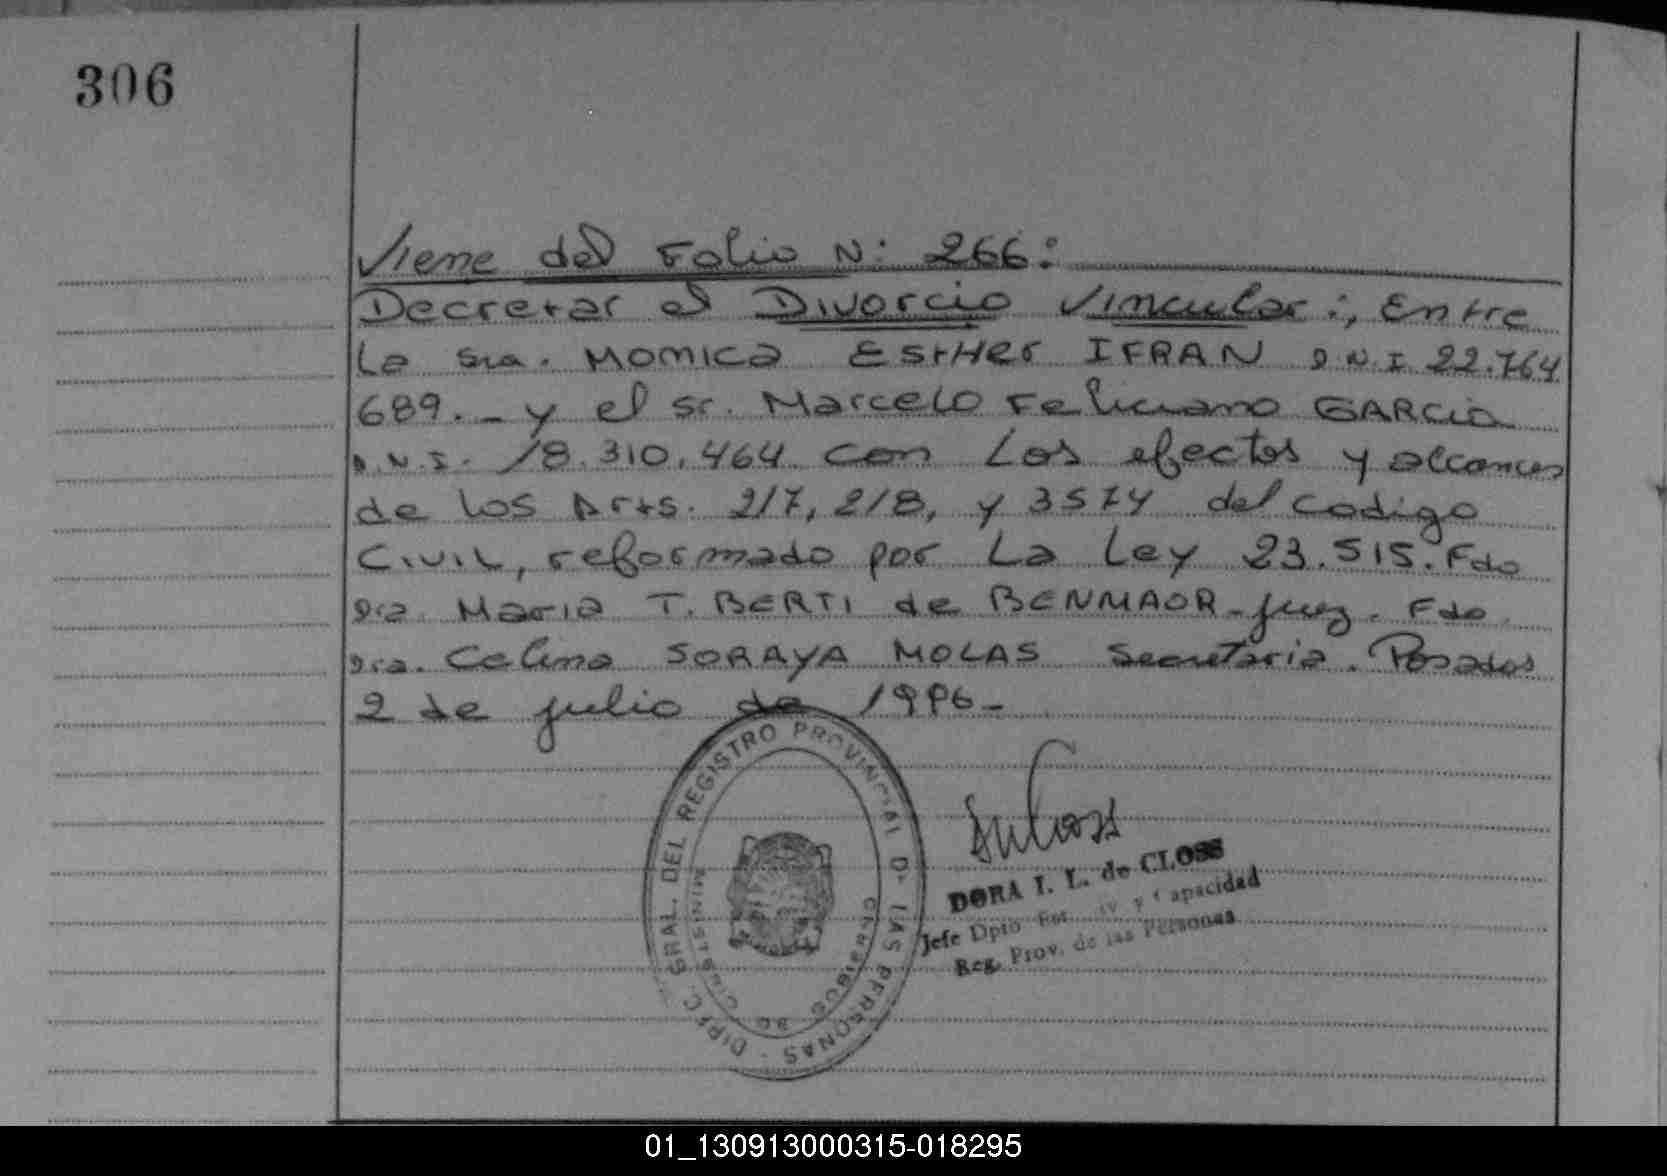 306
Viene del Folio N: 266:
Decretar el Divorcio Vincular:, Entre
la Sra. MONICA ESTHER IFRAN D.N.I 22.764
689.- y el Sr. Marcelo Feliciano GARCIA
D.N.I. 18.310.464 con los efectos y alcances
de los Arts. 217, 218, y 3574 del Codigo
Civil, reformado por La Ley 23.515. Fdo
Dra. Maria T. BERTI de BENMAOR - Juez. Fdo.
Dra. Celina SORAYA MOLAS Secretaria. Posadas
2 de julio de 1996-
DIREC. GRAL. DEL REGISTRO PROVINCIAL DE LAS PERSONAS
MINISTERIO DE GOBIERNO
DORA I. L. de CLOSS
Jefe Dpto y Capacidad
Reg. Prov. de las Personas
01_130913000315-018295